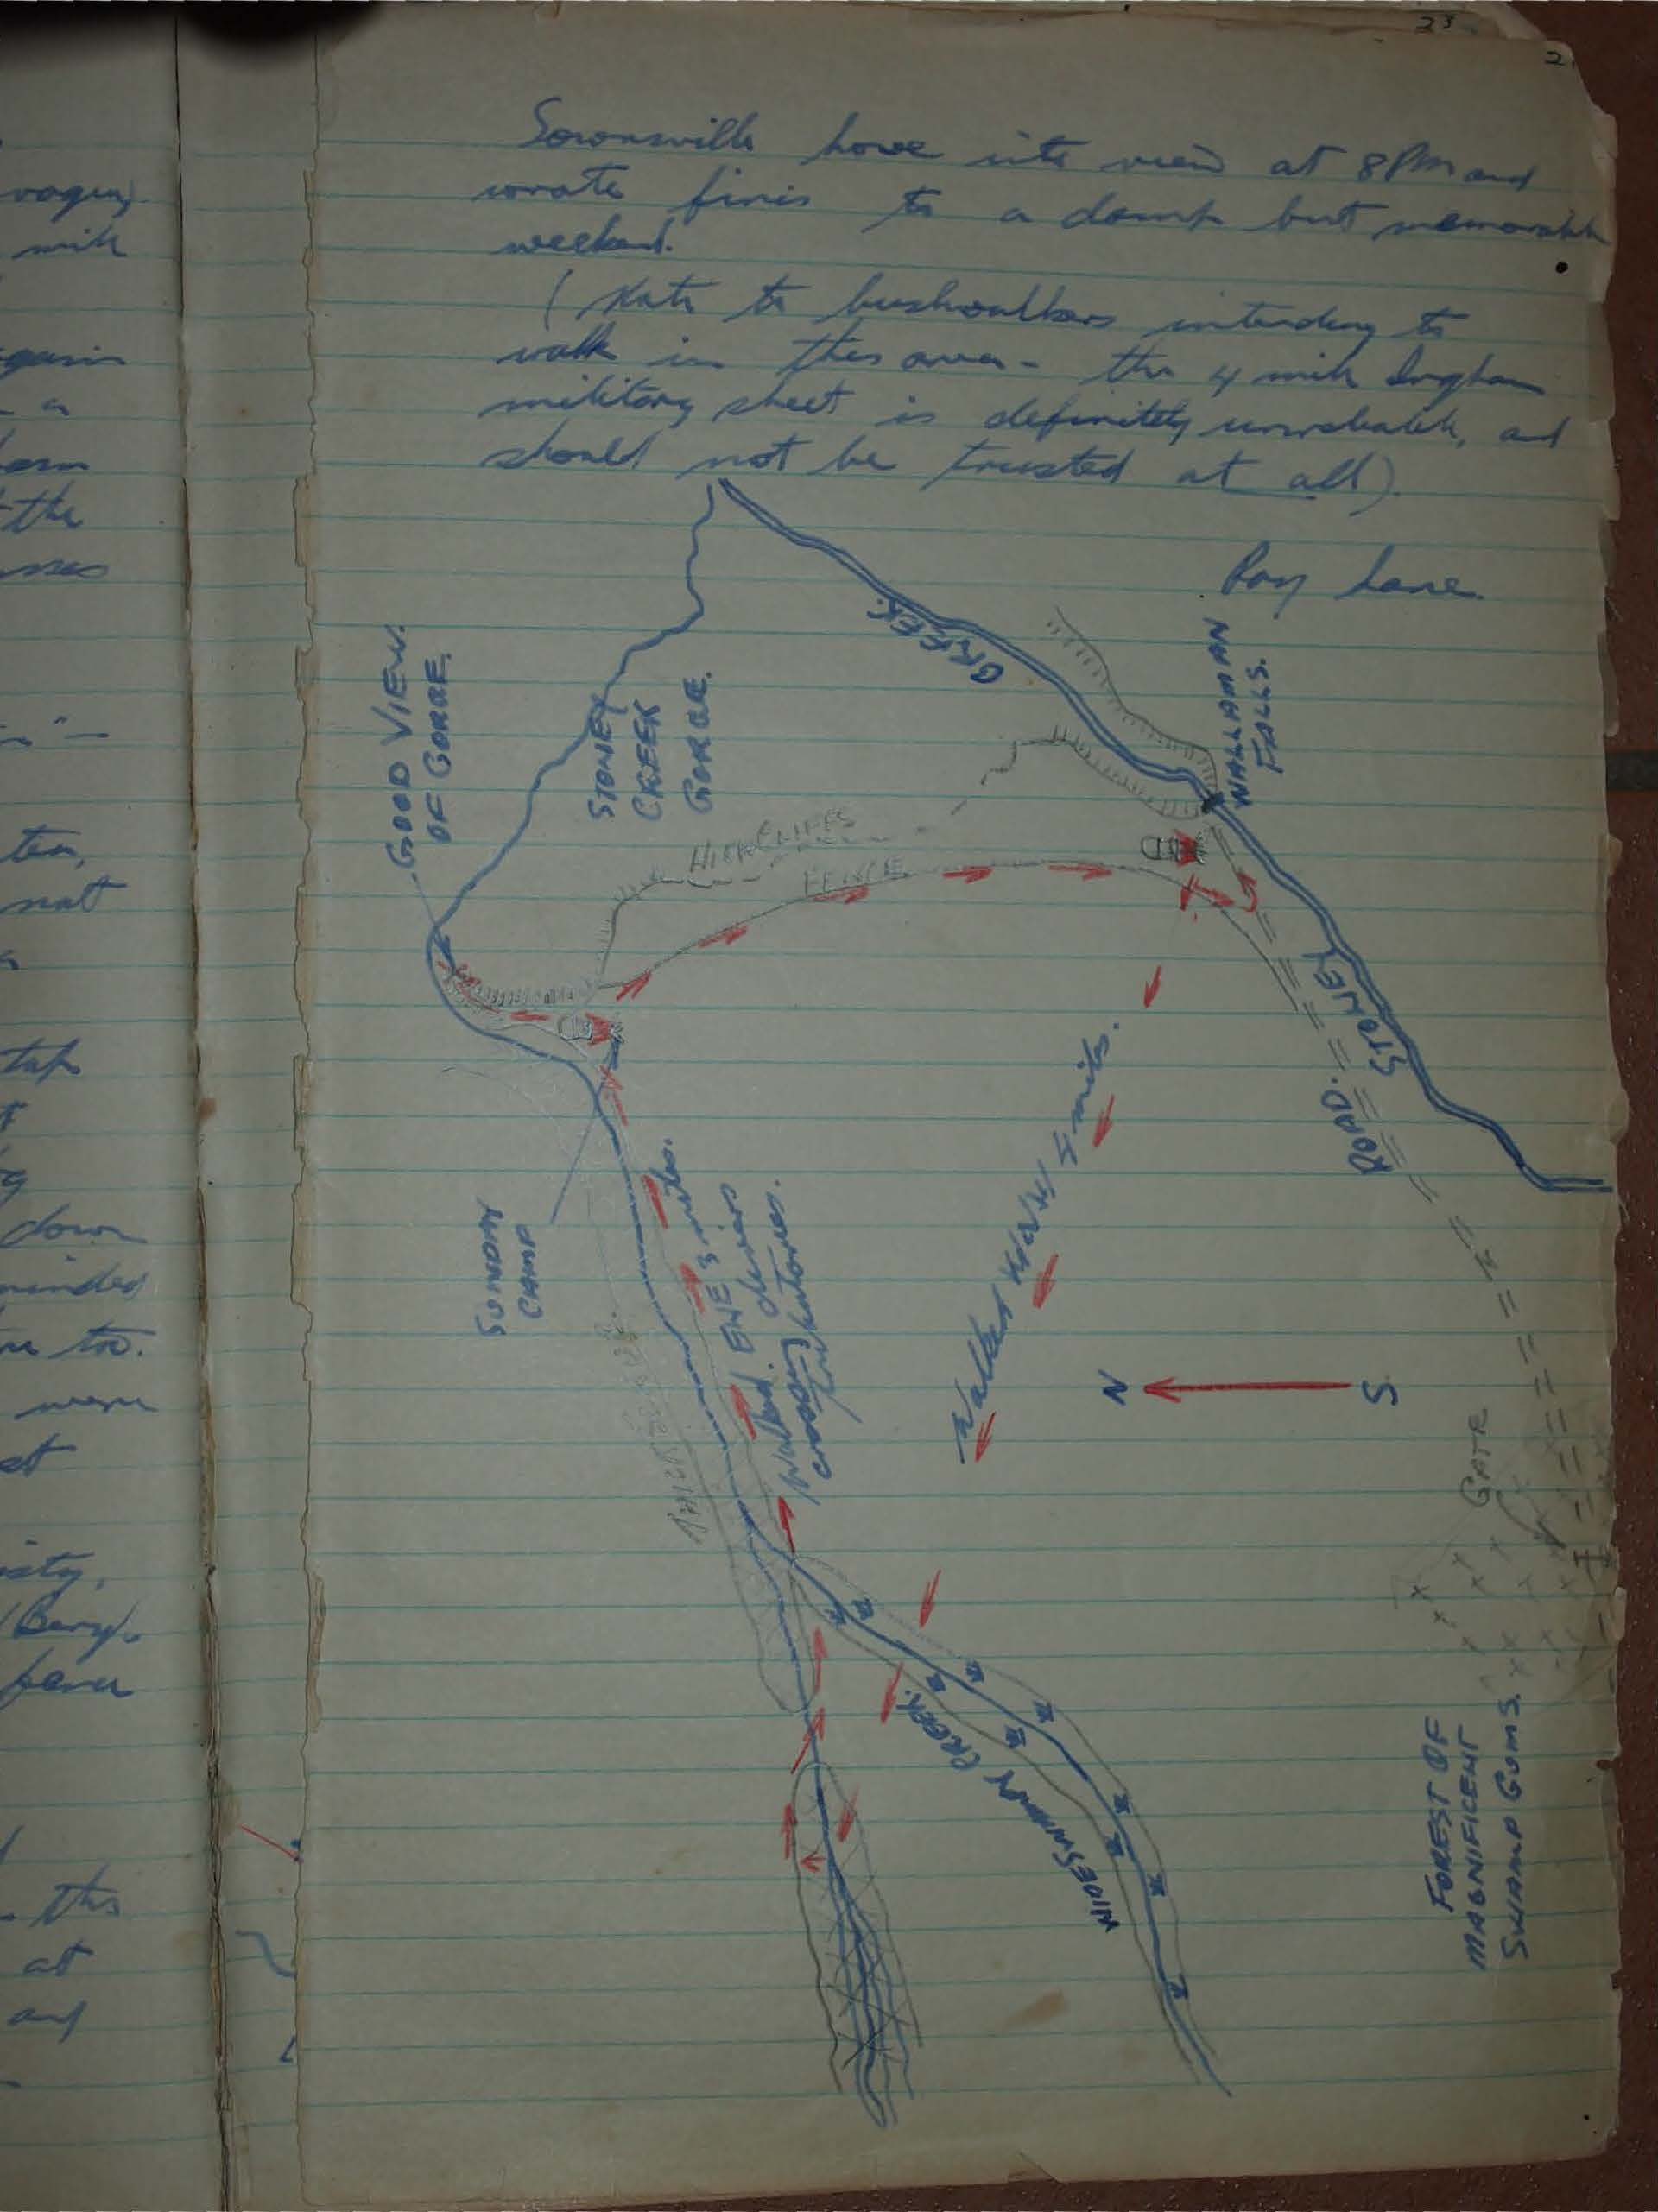 23
2
hove into view at 8 PM and
wrote finis to a damp but memorable
weekend.
(Note to bushwalkers intending to
walk in this area - the 4 mile Ingham
military sheet is definitely unreliable, and
should not be trusted at all).
Ray Lane.
GOOD VIEW.
OF GORGE.
STONEY
CREEK
GORGE.
CREEK.
WALLAMAN
FALLS.
HIGH CLIFFS
FENCE
STONEY
ROAD.
SUNDAY
CAMP
Walked ENE 3 miles.
crossing
Walked WNW 4 miles.
N
S
GATE
WIDE SWAMPY CREEK.
FOREST OF
MAGNIFICENT
SWAMP GUMS.
mile
again
a
the
not
a
down
minded
too.
were
misty,
fever
this
at
and